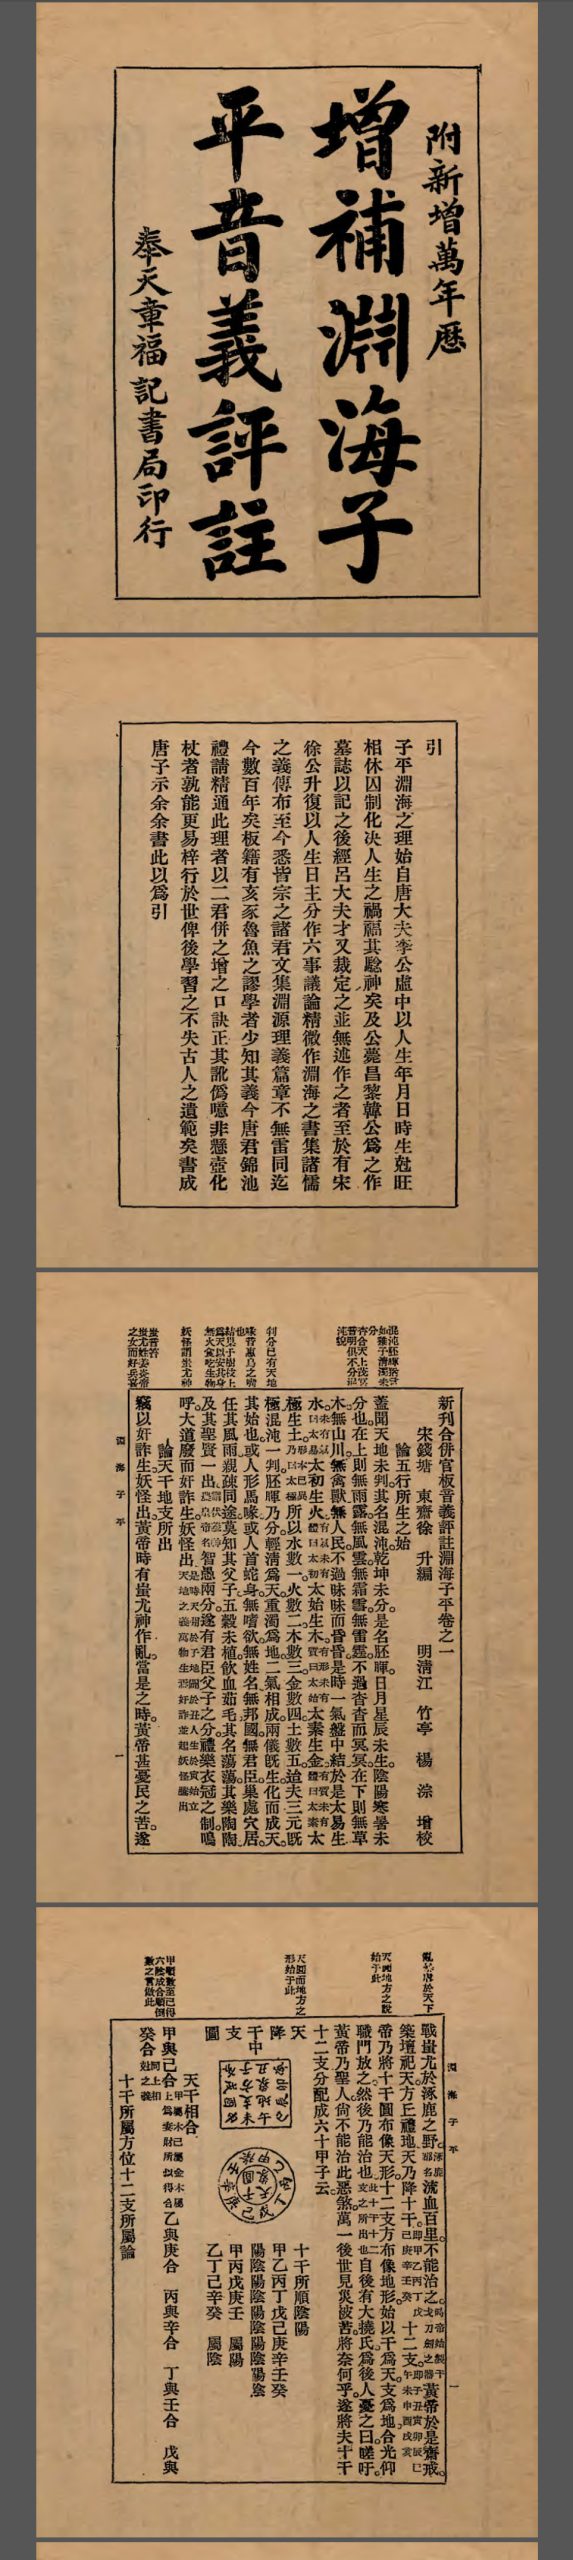 附新增萬年厯
增補淵海子
平音義評註
奉天章福記書局印行
引
子平淵海之理始自唐大夫李公虛中以人生年月日時生尅旺
相休囚制化决人生之禍福其騐神矣及公薨昌黎韓公爲之作
墓誌以記之後經呂大夫才又裁定之並無述作之者至於有宋
徐公升復以人生日主分作六事議論精微作淵海之書集諸儒
之義傳布至今悉皆宗之諸君文集淵源理義篇章不無雷同迄
今數百年矣板籍有亥豕魯魚之謬學者少知其義今唐君錦池
禮請精通此理者以二君併之增之口訣正其訛僞噫非懸壺化
杖者孰能更易梓行於世俾後學習之不失古人之遺範矣書成
唐子示余余書此以爲引
新刋合併官板音義評註淵海子平卷之一
宋錢塘 東齋徐 升編 明淸江 竹亭 楊 淙 增校
論五行所生之始
蓋聞天地未判其名混沌乾坤未分是名胚暉日月星辰未生陰陽寒暑未
分也在上則無雨露無風雲無霜雪無雷霆不過杳杳而冥冥在下則無草
木無山川無禽獸無人民不過昧昧而昏昏是時一氣盤中結於是太易生
水未有氣曰太易太初生火有氣未有體曰太初太始生木有形未有質曰太始太素生金有質未有體曰太素太
極生土形體已具乃曰太極所以水數一火數二木數三金數四土數五迨夫三元旣
極混沌一判胚暉乃分輕淸爲天重濁爲地二氣相成兩儀旣生化而成天
其始也或人形馬喙或人首蛇身無嗜欲無姓名無邦國無君臣巢處穴居
任其風雨親疎同途莫知其父子五穀未植飲血茹毛其名蕩蕩其樂陶陶
及其聖賢一出智愚兩分遂有君臣父子之分禮樂衣冠之制嗚
呼大道廢而奸詐生妖怪出
論天干地支所出
竊以奸詐生妖怪出黃帝時有蚩尤神作亂當是之時黃帝甚憂民之苦遂
淵海子平
一
戰蚩尤於涿鹿之野涿鹿郡名流血百里不能治之黃帝於是齋戒
築壇祀天方丘禮地天乃降十干即甲乙丙丁戊己庚辛壬癸十二支即子丑寅卯辰巳午未申酉戌亥
帝乃將十干圓布像天形十二支方布像地形始以干爲天支爲地合光仰
職門放之然後乃能治也此十干十二支之所出也自後有大撓氏爲後人憂之曰嗟吁
黃帝乃聖人尙不能治此惡煞萬一後世見災被苦將奈何乎遂將夫十干
十二支分配成六十甲子云
天降干支圖
十干所順陰陽
甲乙丙丁戊己庚辛壬癸
陽陰陽陰陽陰陽陰陽陰
甲丙戊庚壬 屬陽
乙丁己辛癸 屬陰
天干相合
甲與己合 乙與庚合 丙與辛合 丁與壬合 戊與
癸合
十干所屬方位十二支所屬論
淵海子平